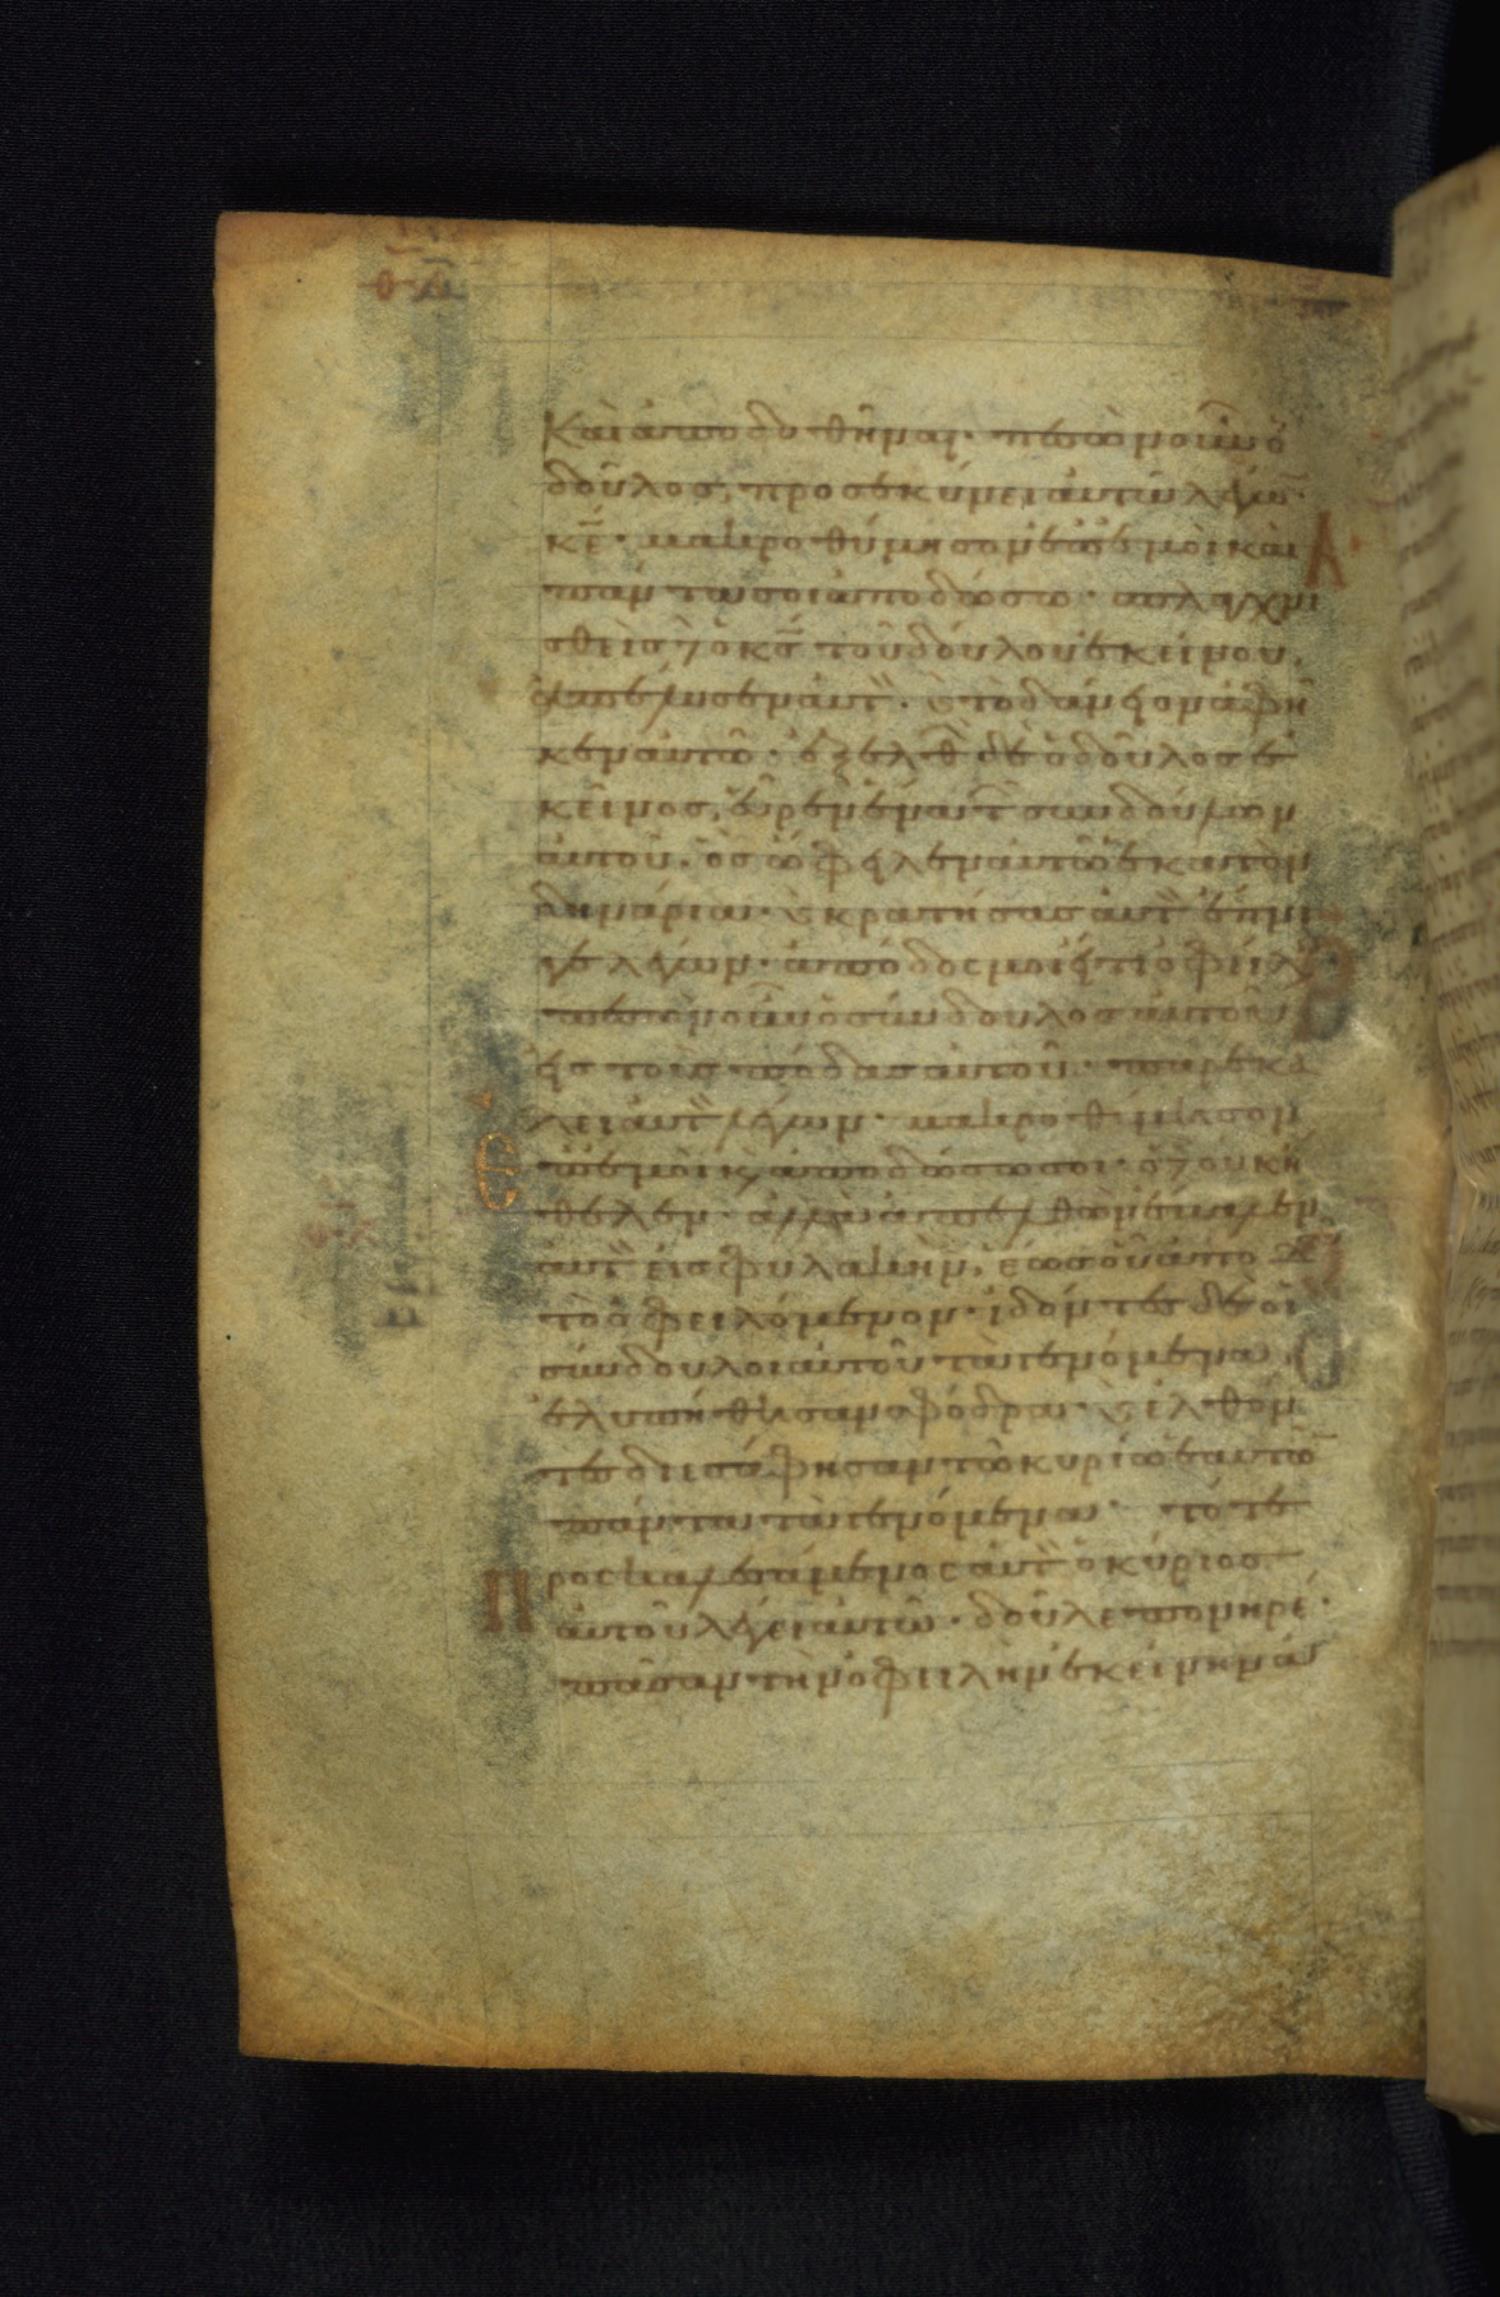 Καὶ ἀποδοθῆναι· πεσὼν οὖν ὁ
δοῦλος, προσεκύνει αὐτῶ λέγων·
κε̄· μακροθύμησον ἐπ' ἐμοὶ καὶ
πάντα σοι ἀποδώσω· σπλαγχνι
σθεὶς δὲ ὁ κς̄ τοῦ δούλου ἐκείνου,
ἀπέλυσεν αὐτ· καὶ τὸ δάνειον ἀφῆ
κεν αὐτῶ· ἐξελθ δὲ ὁ δοῦλος ἐ
κεῖνος, εὗρεν ἕνα τ συνδούλων
αὐτοῦ· ὃς ὤφειλεν αὐτῶ ἑκατὸν
δηνάρια· καὶ κρατήσας αὐτ ἔπνι
γε λέγων· ἀπόδος μοι εἴ τι ὀφείλ
πεσὼν οὖν ὁ σύνδουλος αὐτοῦ
εἰς τοὺς πόδας αὐτοῦ· παρεκά
λει αὐτ λέγων· μακροθύμησον
ἐπ' ἐμοὶ κ ἀποδώσω σοι· ὁ δὲ οὐκ ἤ
θελεν· ἀλλὰ ἀπελθὼν ἔβαλεν
αὐτ εἰς φυλακὴν, ἕως οὗ ἀποδ
τὸ ὀφειλόμενον· ἰδόντες δὲ οἱ
σύνδουλοι αὐτοῦ τὰ γενόμενα,
ἐλυπήθησαν σφόδρα· καὶ ἐλθόν
τες διεσάφησαν τῶ κυρίω ἑαυτῶ
πάντα τὰ γενόμενα· τότε
Προσκαλεσάμενος αὐτ ὁ κύριος
αὐτοῦ λέγει αὐτῶ· δοῦλε πονηρέ·
πᾶσαν τὴν ὀφειλὴν ἐκείνην ἀ